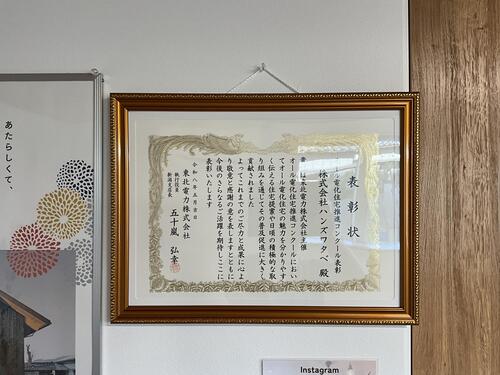 表彰状
オール電化住宅推進コンクール表彰
株式会社ハンズワタベ 殿
東北電力株式会社主催
オール電化住宅推進コンクールにおい
てオール電化住宅の魅力を分かりやす
く伝える住宅提案や日頃の積極的な取
り組みを通じてその普及促進に大きく
貢献されました
よってこれまでのご尽力と成果に心よ
り敬意と感謝の意を表しますとともに
今後のさらなるご活躍を期待しここに
表彰いたします
東北電力株式会社
執行役員
新潟支店長
五十嵐 弘幸
あたらしくて、
Instagram